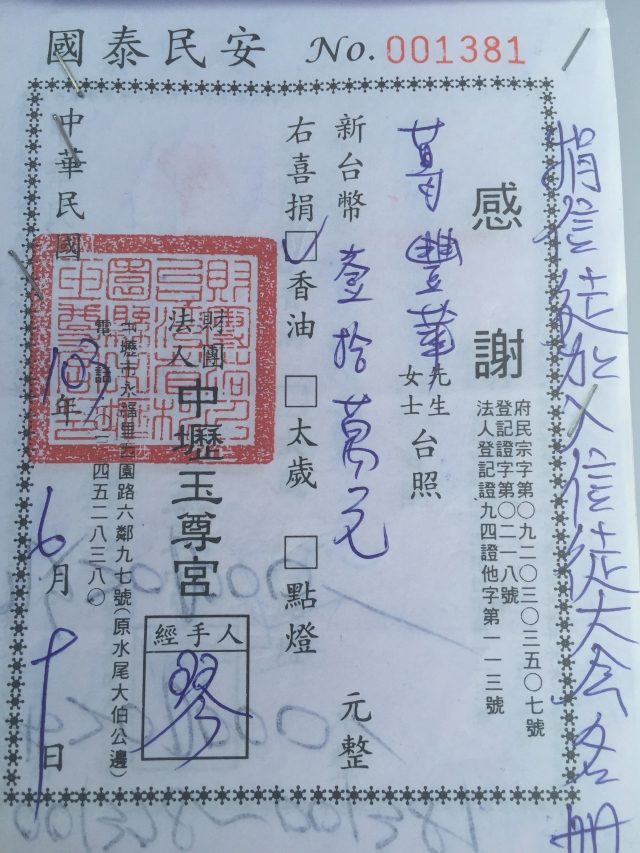 國泰民安 No. 001381
捐信徒加入信徒大会名册
感謝
府民宗字第〇九二〇三〇三五〇七號
登記證字第〇二一八號
法人登記證九四證他字第一一三號
豐華先生女士台照
新台幣壹拾萬元 元整
右喜捐☑香油 □太歲 □點燈
財團法人中壢玉尊宮
經手人
中壢市永福里大園路六鄰九七號(原水尾大伯公邊)
電話 四五二八三八〇
中華民國103年6月 日